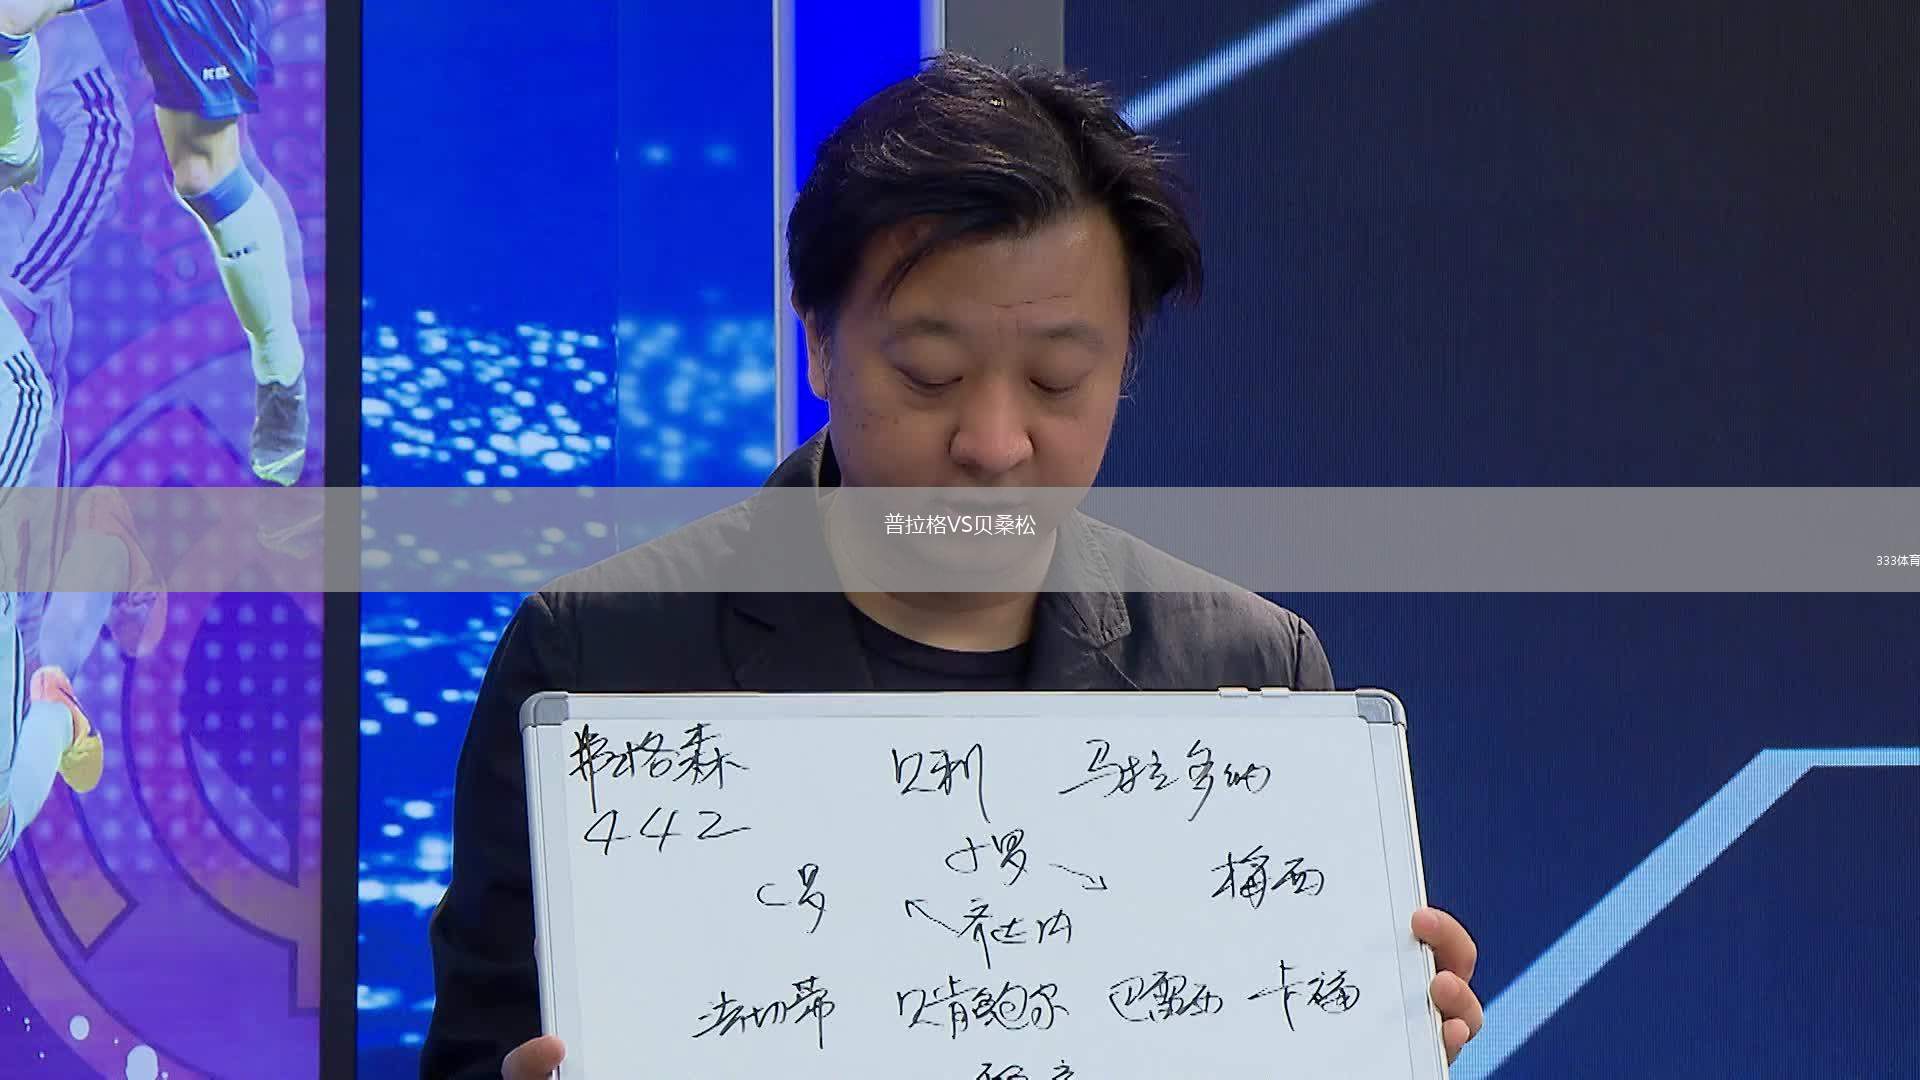 普拉格VS贝桑松
333体育
弗格森 贝利 马拉多纳
442
小罗
C罗 梅西
齐达内
法切蒂 贝肯鲍尔 巴雷西 卡福